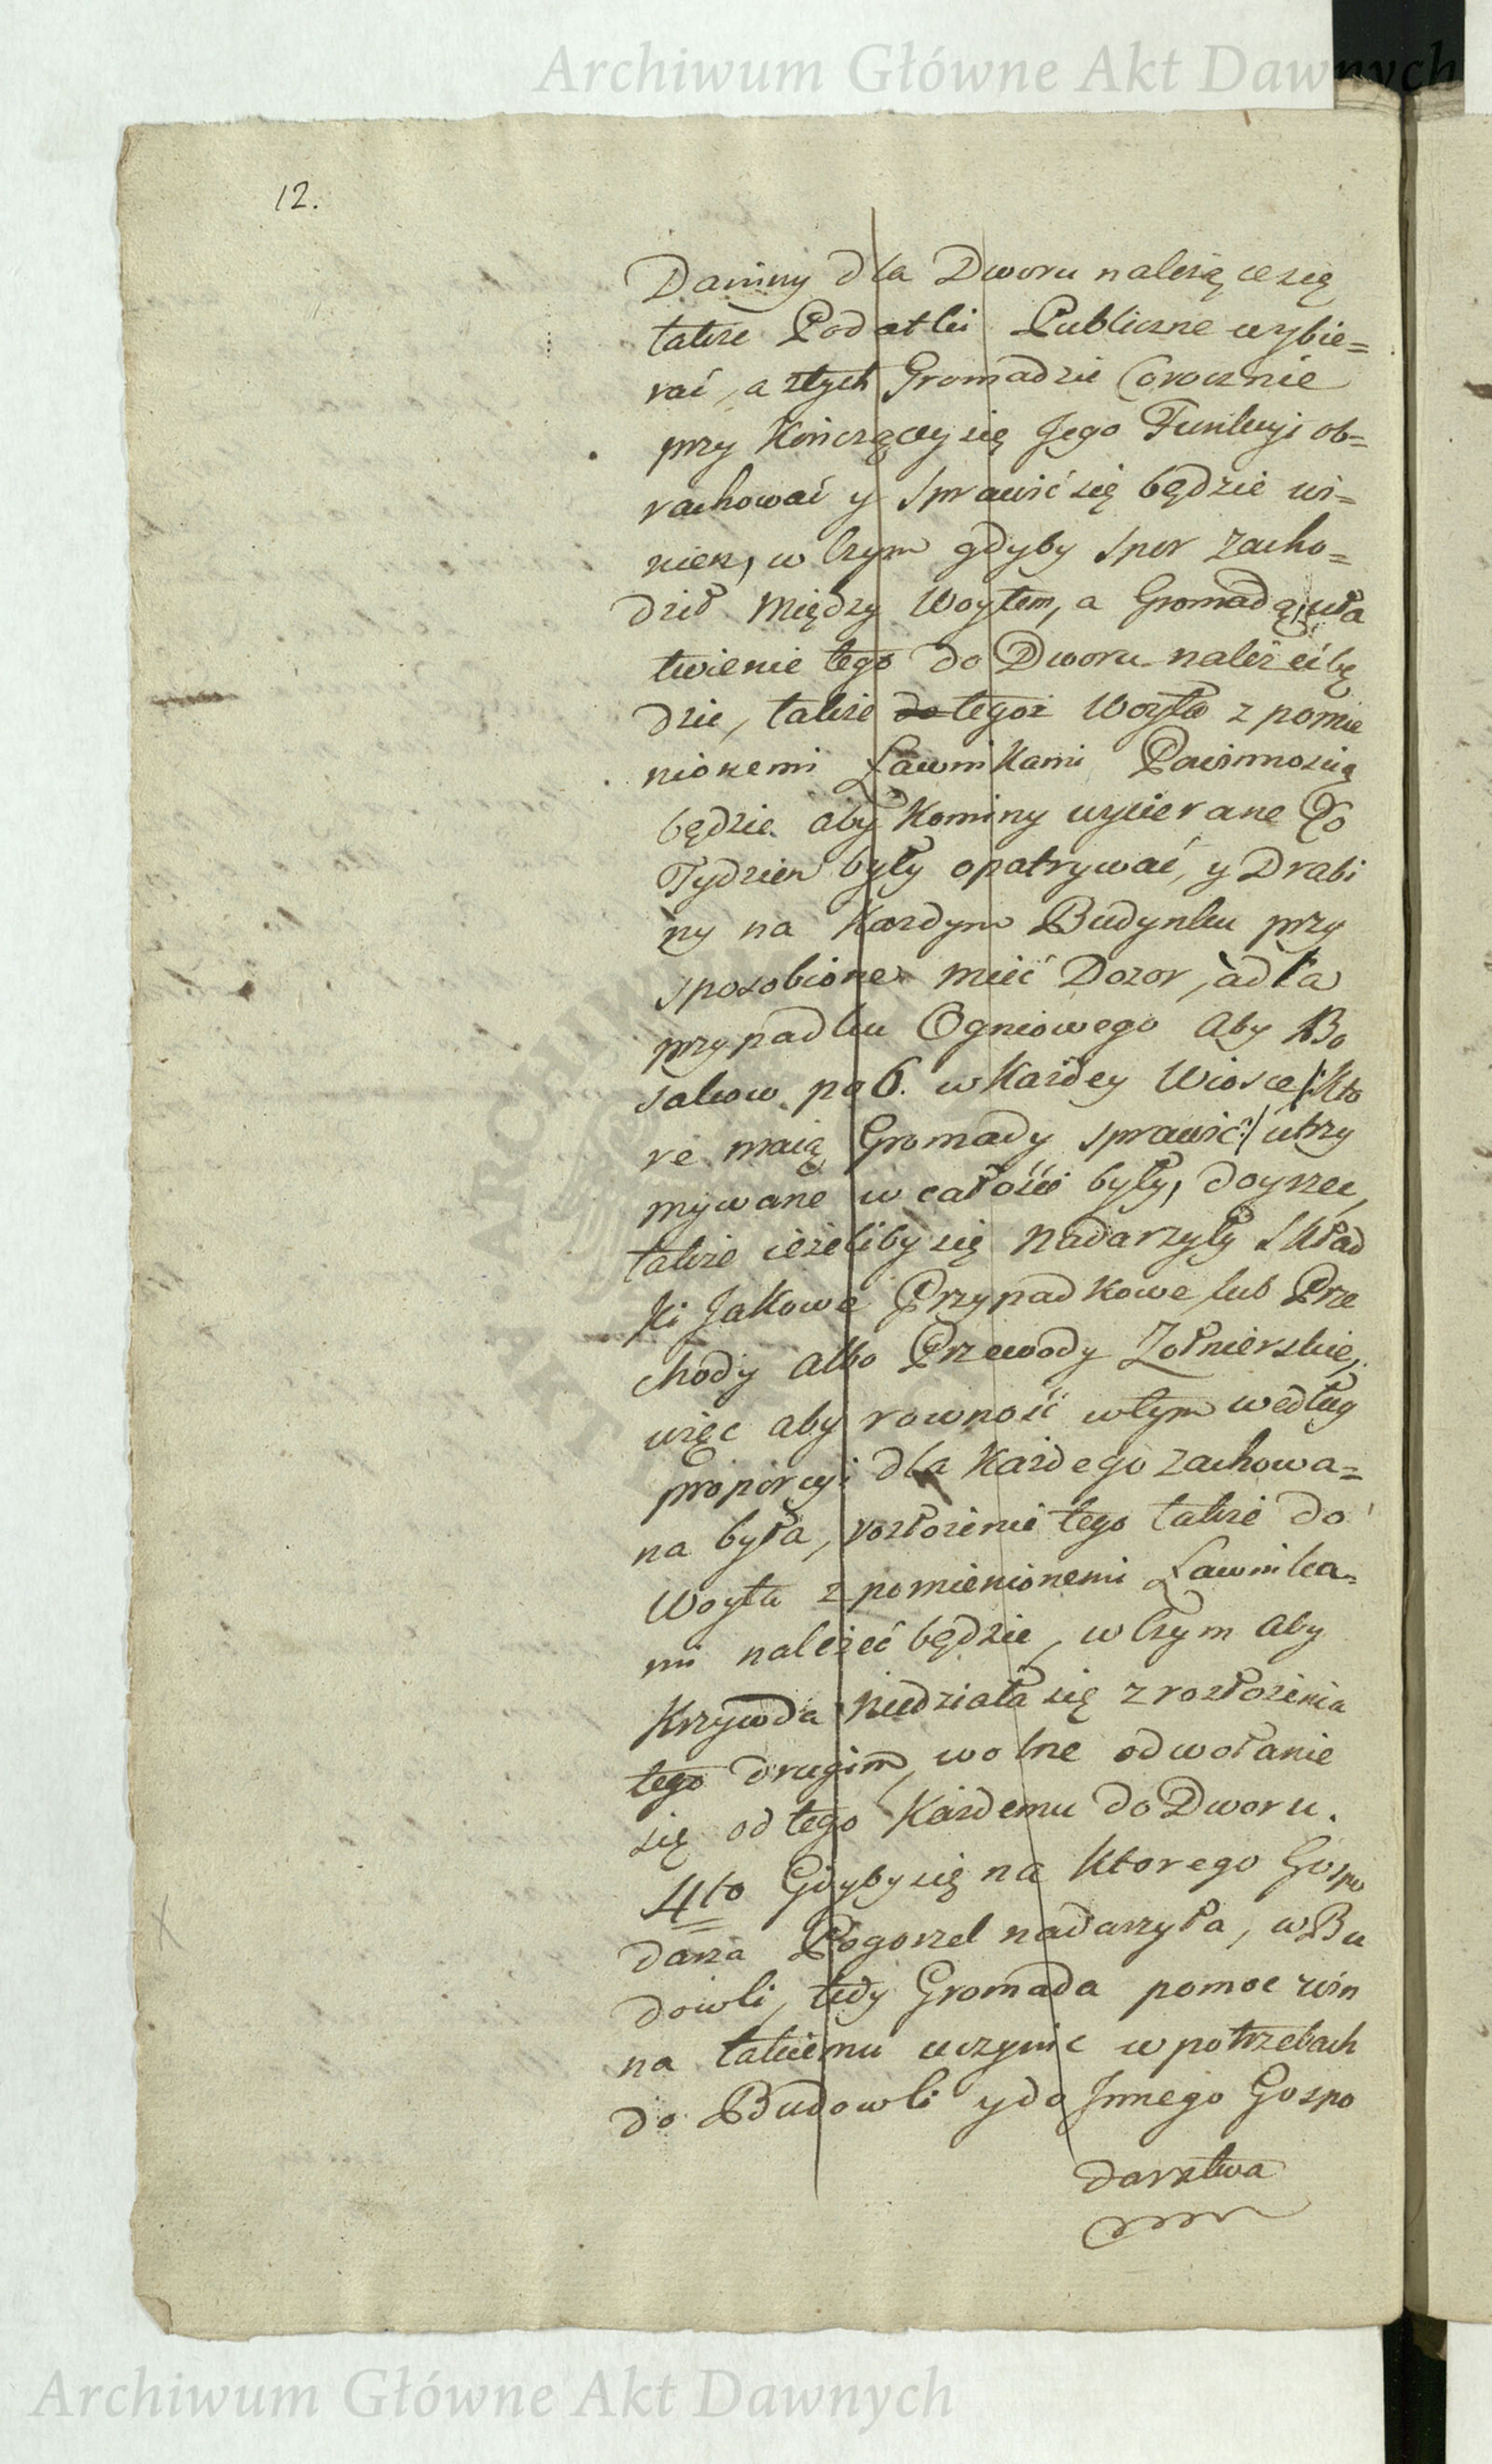 Archiwum Główne Akt Dawnych
12.
Daniny dla Dworu należące się
także Podatki Publiczne wybie=
rać, a ztych Gromadzie Corocznie
przy Kończący się Jego Funkcyi ob=
rachować y sprawić się będzie wi=
nien, w czym gdyby spor zacho=
dził między Woytem, a Gromadą, uła
twienie tego do Dworu należeć bę
dzie, także do tegoż Woyta z pomie
nionemi Ławnikami Powinnością
będzie aby Kominy wycierane Co
Tydzien były opatrywać, y Drabi
ny na Kazdym Budynku przy
sposobione mieć Dozor, a dla
przypadku Ogniowego aby Bo
sakow po 6. w Każdey Wiosce /: Kto
re maią Gromady sprawić :/ utrzy
mywane w całości były, doyrzec,
także ieżeliby się nadarzyły Skład
ki Jakowe Przypadkowe lub Prze
chody albo Przewody Żołnierskie,
więc aby rowność w tym według
proporcyi dla Każdego zachowa=
na była, rozłożenie tego także do
Woyta z pomienionemi Ławnika=
mi należeć będzie, w czym aby
Krzywda niedziała się z rozłożenia
tego drugim, wolne odwołanie
się od tego Każdemu do Dworu.
4to Gdyby się na Ktorego Gospo
darza Pogorzel nadarzyła, w Bu
dowli, tedy Gromada pomoc win
na takiemu uczynic w potrzebach
do Budowli y do Innego Gospo
darztwa
Archiwum Główne Akt Dawnych